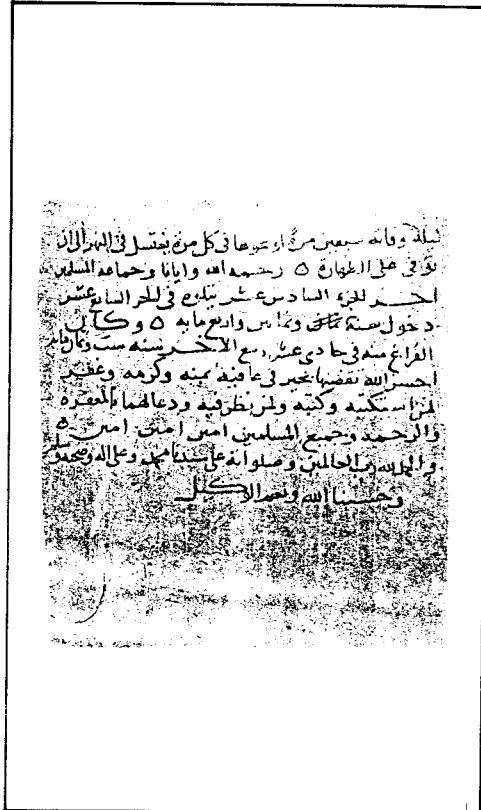 ليلة وفاته سبعين مرة أو نحوها في كل مرة يغتسل في النهر إلى أن
توفي على الطهارة ٥ رحمه الله وايانا وجماعة المسلمين
آخر الجزء السادس عشر يتلوه في الجزء السابع عشر
دخول سنة ثمان وثمانين واربع مايه ٥ وكان
الفراغ منه في حادي عشر ربيع الآخر سنه ست
احسن الله تقضيها بخير في عافية بمنه وكرمه وغفر
لمن استكتبه وكتبه ولمن نظر فيه ودعا لهما بالمغفرة
والرحمه وجميع المسلمين امين امين امين ٥
والحمد لله رب العالمين وصلواته على سيدنا محمد وعلى اله وصحبه وسلم
وحسبنا الله ونعم الوكيل